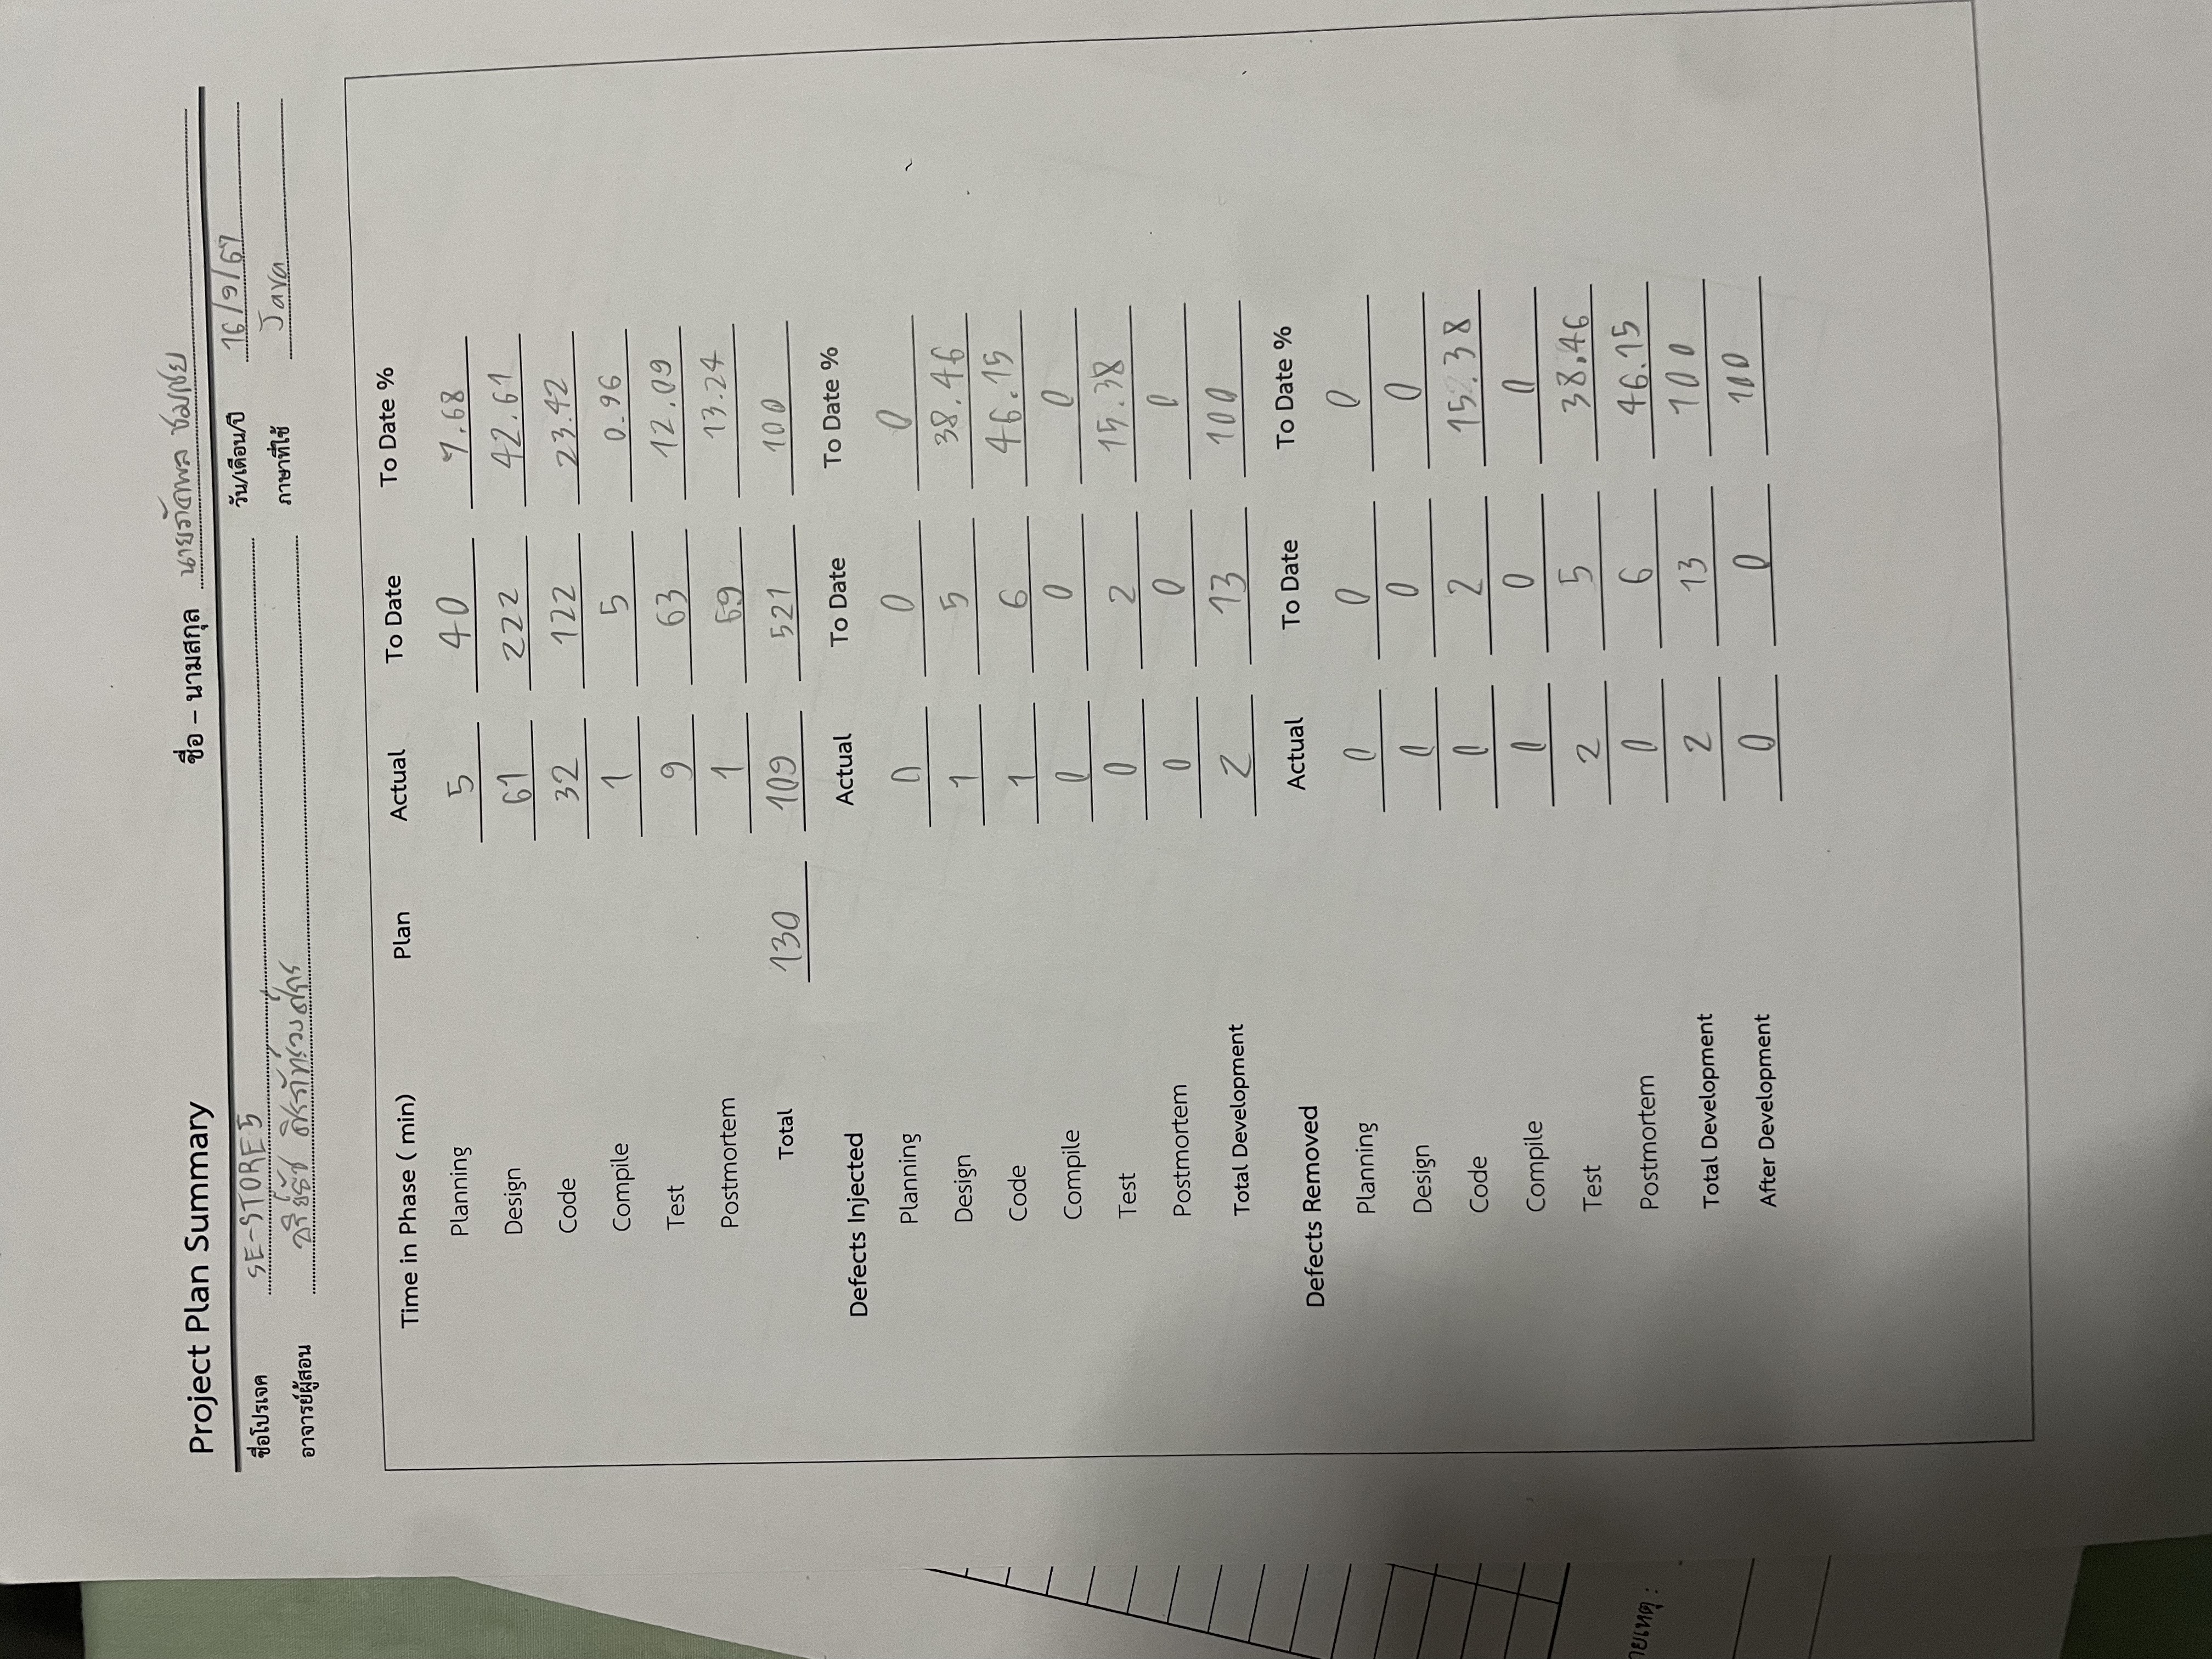 Project Plan Summary ชื่อ – นามสกุล นายภัคพล ชมเชย
ชื่อโปรเจค SE-STORE5 วัน/เดือน/ปี 16/9/67
อาจารย์ผู้สอน ภาษาที่ใช้ Java
Time in Phase ( min) Plan Actual To Date To Date %
Planning 5 40 7.68
Design 61 222 42.61
Code 32 122 23.42
Compile 1 5 0.96
Test 9 63 12.09
Postmortem 1 69 13.24
Total 130 109 521 100
Defects Injected Actual To Date To Date %
Planning 0 0 0
Design 1 5 38.46
Code 1 6 46.15
Compile 0 0 0
Test 0 2 15.38
Postmortem 0 0 0
Total Development 2 13 100
Defects Removed Actual To Date To Date %
Planning 0 0 0
Design 0 0 0
Code 0 2 15.38
Compile 0 0 0
Test 2 5 38.46
Postmortem 0 6 46.15
Total Development 2 13 100
After Development 0 0 100
ายเหตุ :